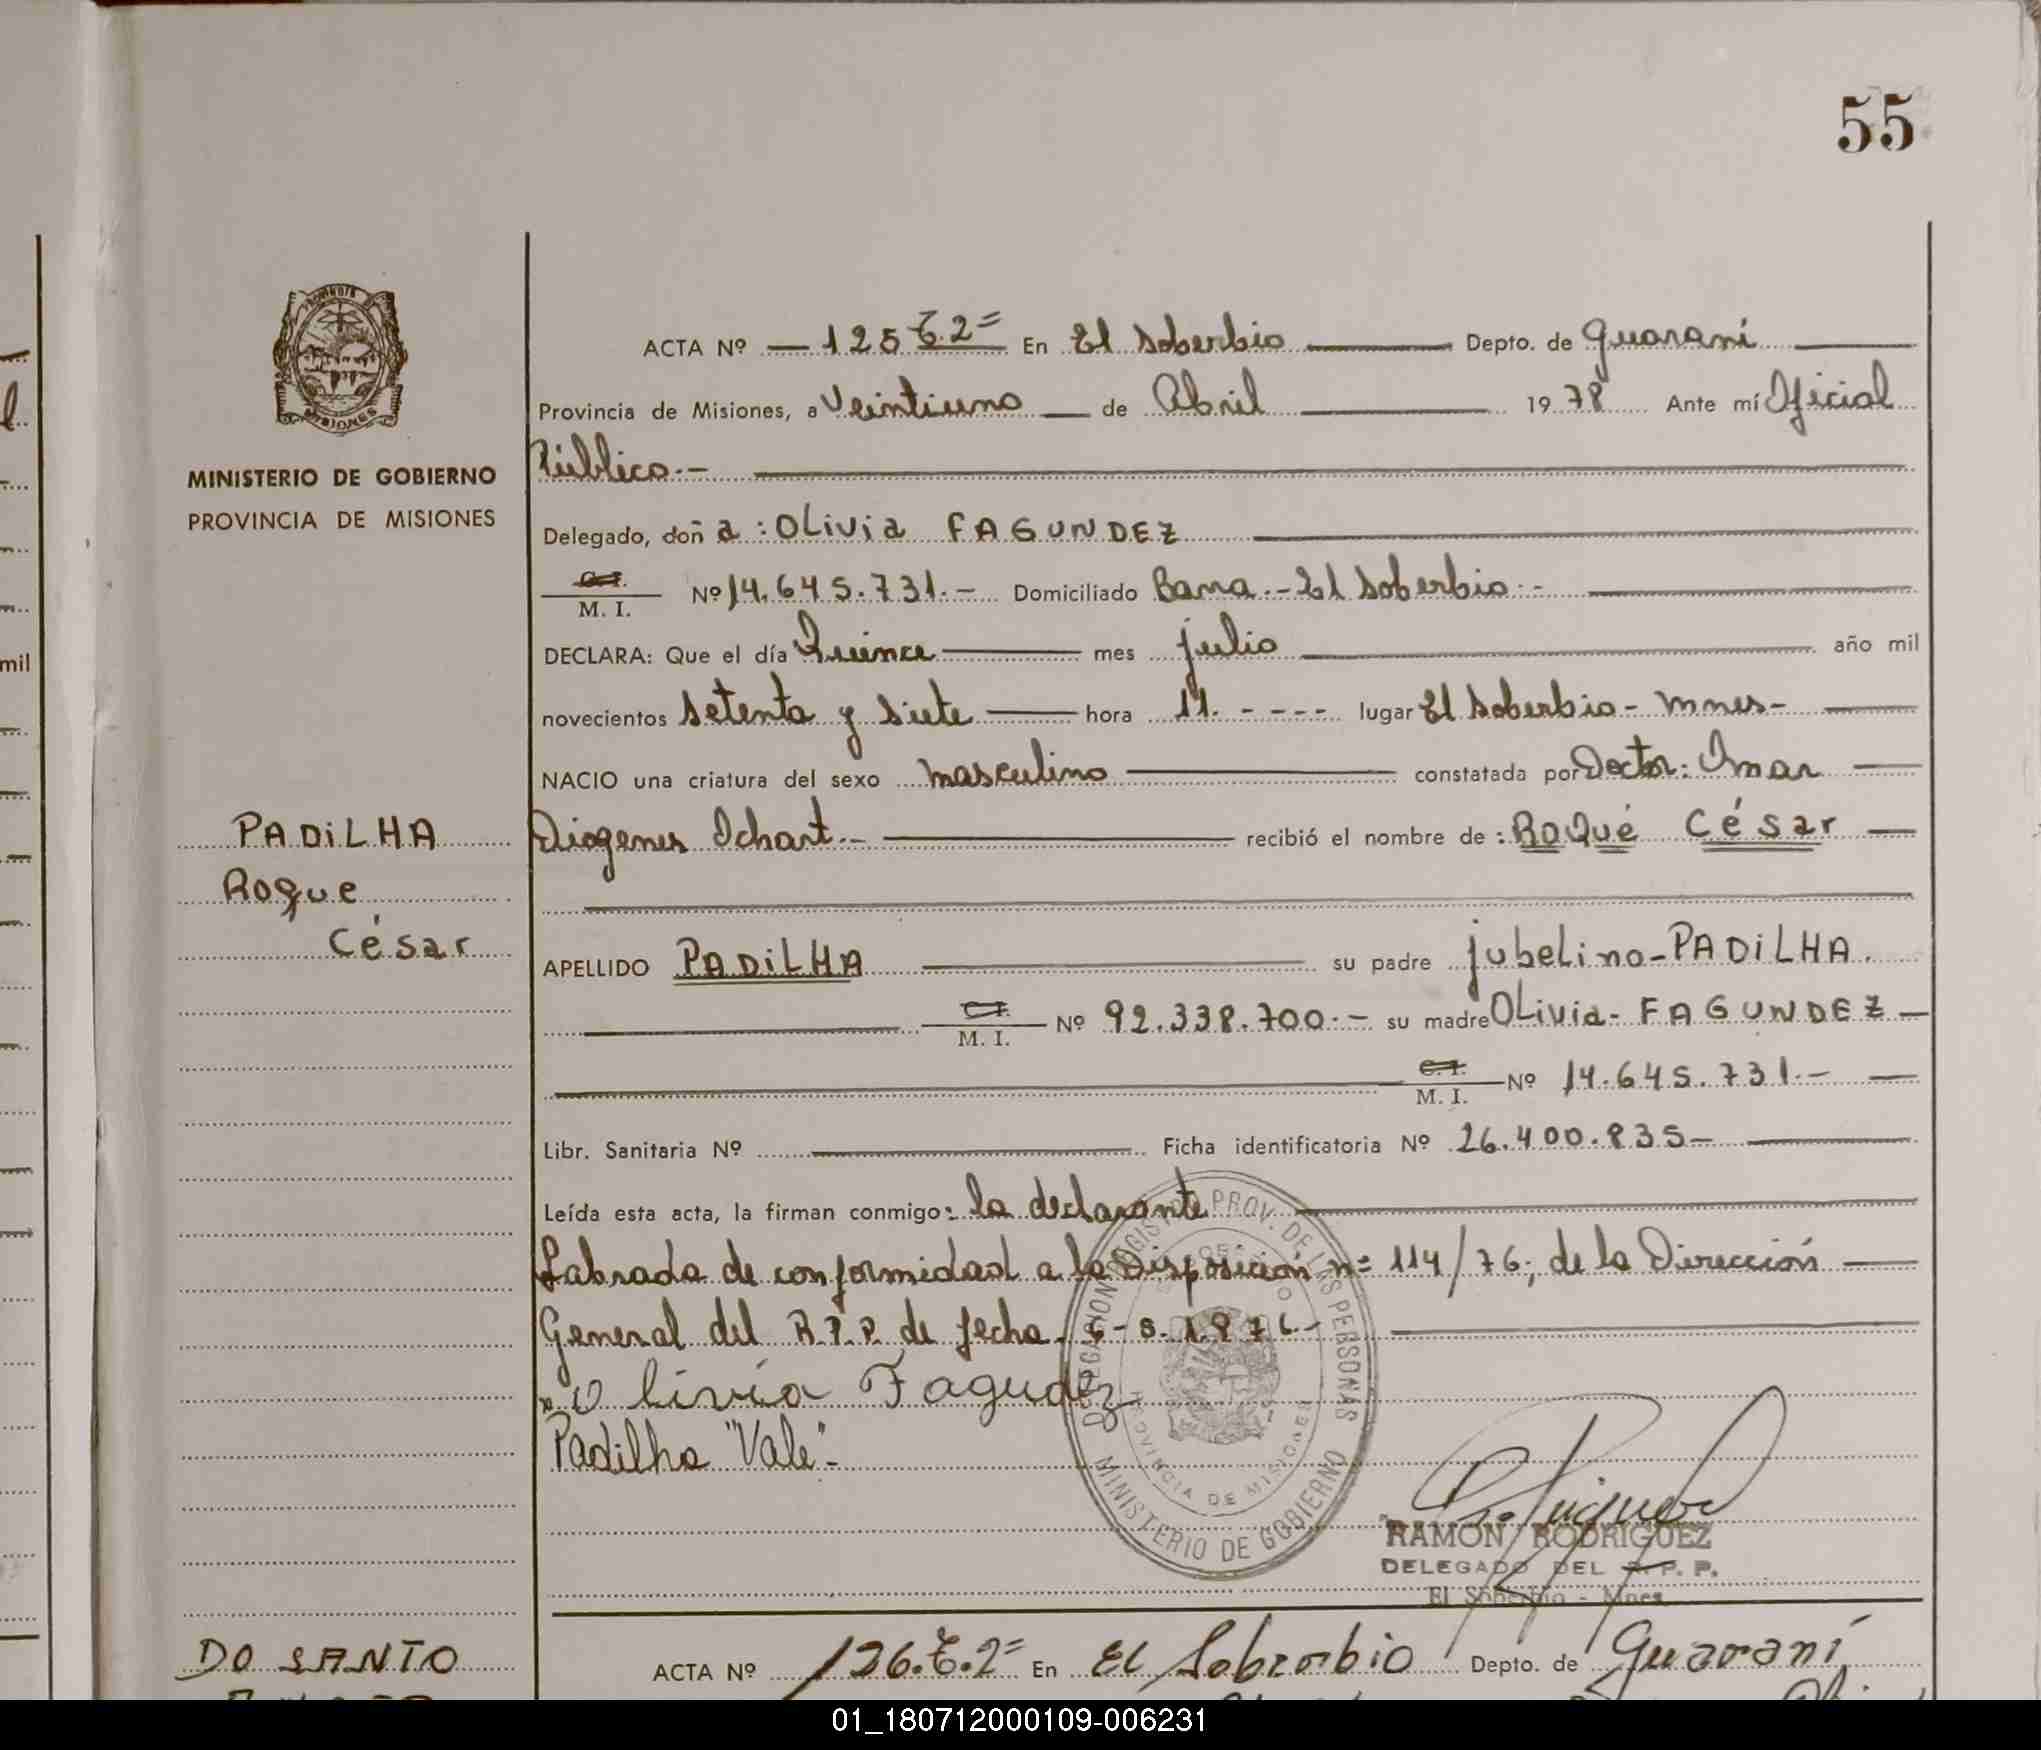 55
PROVINCIA
MISIONES
MINISTERIO DE GOBIERNO
PROVINCIA DE MISIONES
ACTA Nº 125 T.2= En El Soberbio Depto. de Guaraní
Provincia de Misiones, a Veintiuno de Abril 1978 Ante mí Oficial
Público.-
Delegado, doña: OLivia FAGUNDEZ
C. I.
M. I. Nº 14.645.731.- Domiciliado Barra.- El Soberbio.-
DECLARA: Que el día Quince mes julio año mil
novecientos Setenta y Siete hora 11. - - - - lugar El Soberbio - Mnes-
NACIO una criatura del sexo masculino constatada por Doctor: Omar
Diogenes Ichart.- recibió el nombre de: Roqué César
PADiLHA
Roque
César
APELLIDO PADiLHA su padre jubeLino-PADiLHA.
C. I.
M. I. Nº 92.338.700.- su madre OLivia- FAGUNDEZ
C. I.
M. I. Nº 14.645.731.-
Libr. Sanitaria Nº Ficha identificatoria Nº 26.400.835-
Leída esta acta, la firman conmigo: la declarante
Labrada de conformidad a la Disposición nº 114/76; de la Dirección
General del R.P.P. de fecha 6-8-1976.-
Olivia Fagudez
Padilha "Vale".-
DELEGACION REGISTRO PROV. DE LAS PERSONAS
PROVINCIA DE MISIONES
MINISTERIO DE GOBIERNO
RAMON RODRIGUEZ
DELEGADO DEL R. P. P.
El Soberbio - Mnes.
DO SANTO
ACTA Nº 126.T.2= En El Soberbio Depto. de Guaraní
mil
01_180712000109-006231